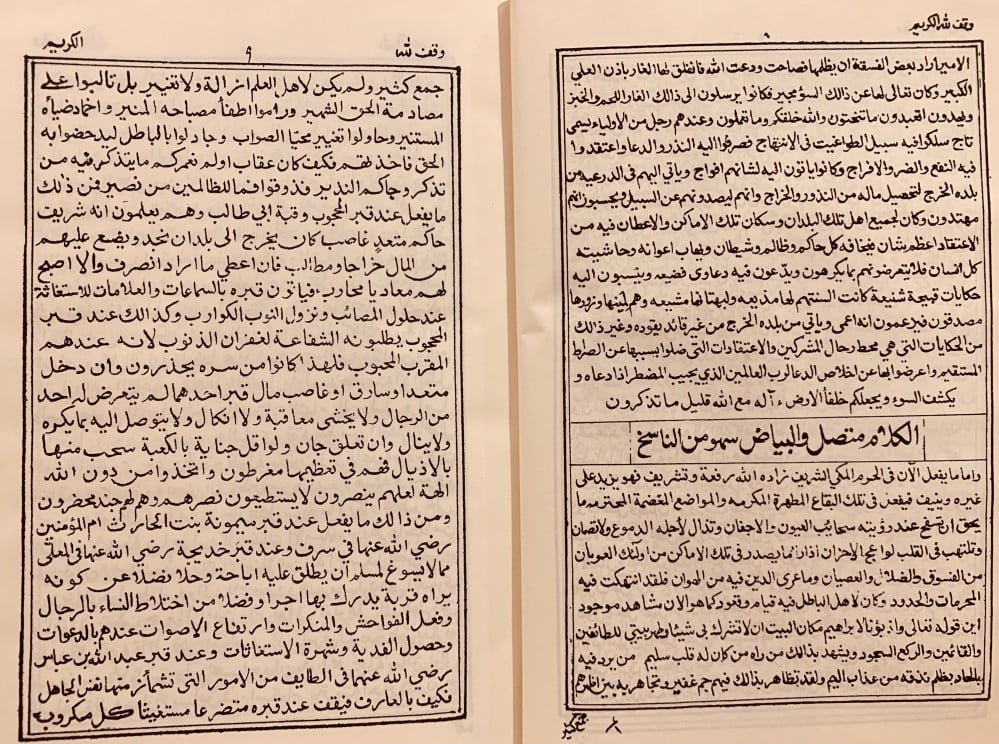 وقف لله الكريم
الامير اراد بعض الفسقة ان يظلمها فصاحت ودعت الله فانفلق لها الغار باذن العلي
الكبير وكان تعالى لها عن ذالك السوء مجير فكانوا يرسلون الى ذالك الغار اللحم والخبز
ويهدون اتعبدون ما تنحتون والله خلقكم وما تعملون وعندهم رجل من الأولياء يسمى
تاج سلكوا فيه سبيل الطواغيت فى الانتهاج فصرفوا اليه النذور والدعا واعتقدوا
فيه النفع والضر والافراج وكانوا ياتون اليه لشانهم افواج وياتي اليهم فى الدرعية من
بلده الخرج لتحصيل ماله من النذور والخراج وانهم ليصدونهم عن السبيل ويحسبون انهم
مهتدون وكان لجميع اهل تلك البلدان وسكان تلك الاماكن والاعطان فيه من
الاعتقاد اعظم شان فيخافه كل حاكم وظالم وشيطان ويهاب اعوانه وحاشيته
كل انسان فلا يتعرضونهم بما يكرهون ويدّعون فيه دعاوى فضيعه وينسبون اليه
حكايات قبيحة شنيعة كانت السنتهم لها مذيعه
مصدقون فيزعمون انه اعمى وياتي من بلده الخرج من غير قائد يقوده وغير ذالك
من الحكايات التي هي محط رحال المشركين والاعتقادات التي ضلوا بسببها عن الصراط
المستقيم واعرضوا بها عن اخلاص الدعا لرب العالمين الذي يجيب المضطر اذا دعاه و
يكشف السوء ويجعلكم خلفآ الارض ءآله مع الله قليل ما تذكرون
الكلام متصل والبياض سهو من الناسخ
واما ما يفعل الآن فى الحرم المكي الشريف زاده الله رفعة وتشريف فهو يزيد على
غيره وينيف فيفعل فى تلك البقاع المطهرة المكرمه والمواضع المعظمة المحترمه ما
يحق ان تسفح عند رؤيته سحايب العيون والاجفان وتدال لأجله الدموع ولا تصان
وتلتهب فى القلب لواعج الاحزان اذا ما يصدر فى تلك الاماكن من اولئك العوبان
من الفسوق والضلال والعصيان وما عرى الدين فيه من الهوان فلقد انتهكت فيه
المحرمات والحدود وكان لاهل الباطل فيه قيام وقعود كما هو الان شاهد موجود
ابن قوله تعالى واذ بوّنا لابراهيم مكان البيت ان لا تشرك بى شيئا وطهر بيتي للطائفين
والقائمين والركع السجود ويشهد بذالك من راه من كان له قلب سليم من يرد فيه
بالحاد بظلم نذقه من عذاب اليم ولقد تظاهر بذالك فيهم جم غفير وتجاهر به بين اظهرهم
وقف لله الكريم
٩
جمع كثير ولم يكن لاهل العلم ازالة ولا تغيير بل تالبوا على
مصادمة الحق الشهير وراموا اطفآ مصباحه المنير واخماد ضياه
المستنير وحاولوا تغيير محيا الصواب وجادلوا بالباطل ليدحضوا به
الحق فاخذ لهم فكيف كان عقاب اولم نعمركم ما يتذكر فيه من
تذكر وجاكم النذير فذوقوا فما للظالمين من نصير فمن ذلك
ما يفعل عند قبر المحجوب وقبة ابي طالب وهم يعلمون انه شريف
حاكم متعدٍ غاصب كان يخرج الى بلدان نجد ويضع عليهم
من المال خراجا ومطالب فان اعطي ما اراد انصرف والا اصبح
لهم معاديا محارب فياتون قبره بالسماعات والعلامات للاستغاثة
عند حلول المصائب ونزول النوب الكوارب وكذالك عند قبر
المحجوب يطلبونه الشفاعة لغفران الذنوب لانه عندهم
المقرب المحبوب فلهذا كانوا من سره يحذرون وان دخل
متعدا وسارق او غاصب مال قبر احدهما لم يتعرض له احد
من الرجال ولا يخشى معاقبة ولا انكال ولا يتوصل اليه بما يكره
ولا ينال وان تعلق جان ولو اقل جناية بالكعبة سحب منها
بالاذيال فهم في تعظيمها مفرطون واتخذوا من دون الله
الهة لعلهم ينصرون لا يستطيعون نصرهم وهم لهم جند محضرون
ومن ذالك ما يفعل عند قبر ميمونة بنت الحارث ام المؤمنين
رضي الله عنها في سرف وعند قبر خديجة رضي الله عنها في المعلى
مما لا يسوغ لمسلم ان يطلق عليه اباحة وحلا فضلا عن كونه
يراه قربة يدرك بها اجرا وفضلا من اختلاط النساء بالرجال
وفعل الفواحش والمنكرات وارتفاع الاصوات عندهم بالدعوات
وحصول الفدية وشهرة الاستغاثات وعند قبر عبد الله بن عباس
رضي الله عنها في الطايف من الامور التي تشمأز منها نفس الجاهل
فكيف بالعارف فيقف عند قبره متضرعا مستغيثا كل مكروب